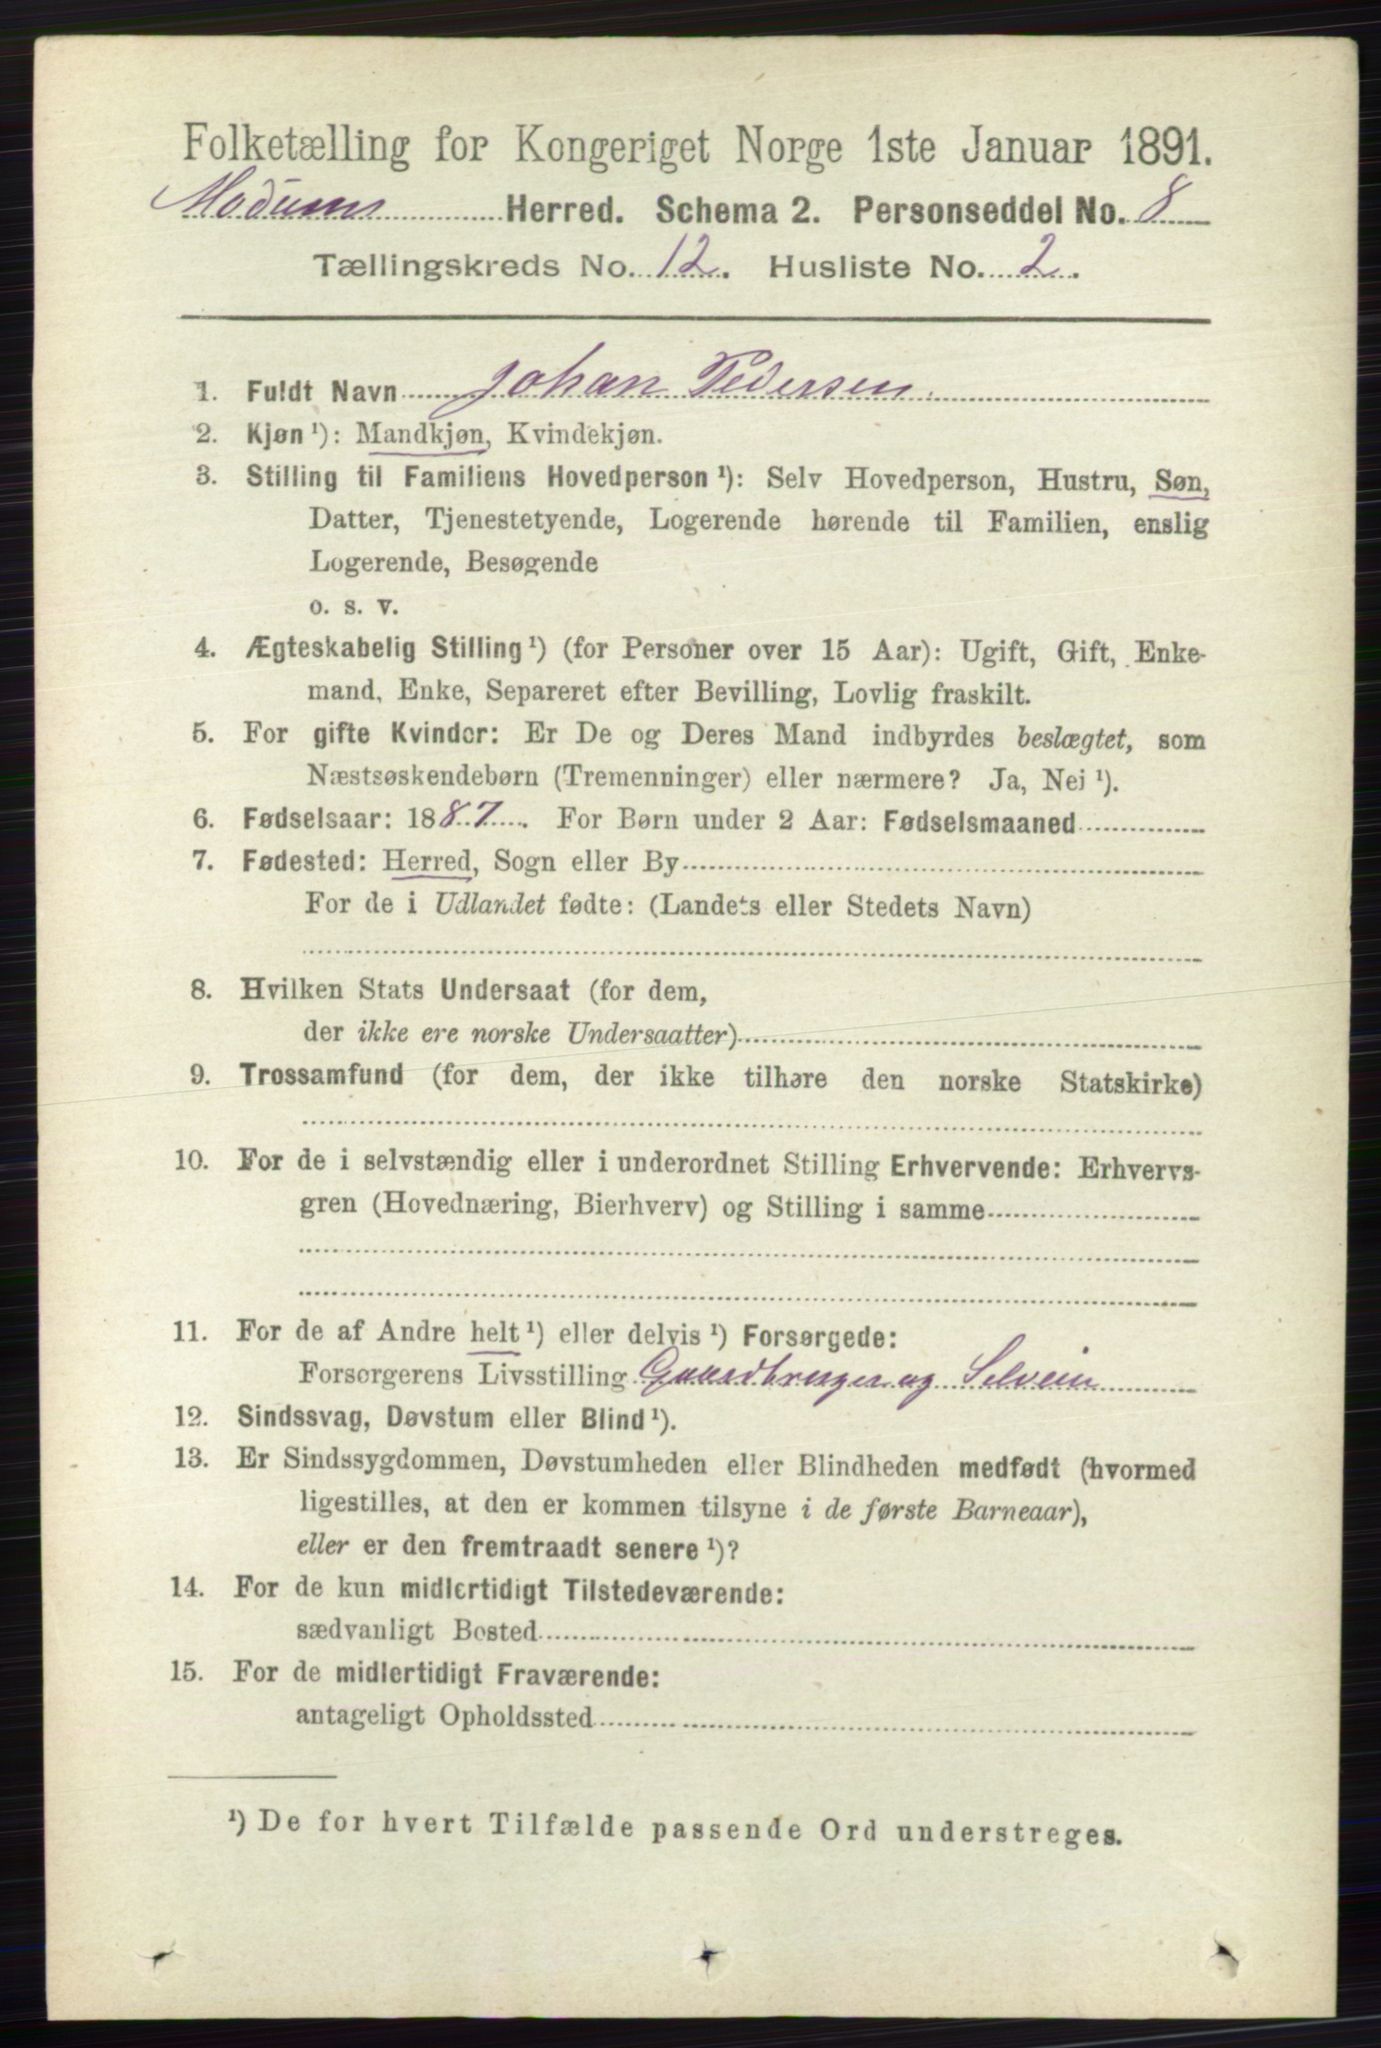 Folketælling for Kongeriget Norge 1ste Januar 1891.
Modums Herred. Schema 2. Personseddel No. 8
Tællingskreds No. 12. Husliste No. 2.
1. Fuldt Navn Johan Pedersen.
2. Kjøn ¹): Mandkjøn, Kvindekjøn.
3. Stilling til Familiens Hovedperson ¹): Selv Hovedperson, Hustru, Søn,
Datter, Tjenestetyende, Logerende hørende til Familien, enslig
Logerende, Besøgende
o. s. v.
4. Ægteskabelig Stilling ¹) (for Personer over 15 Aar): Ugift, Gift, Enke-
mand, Enke, Separeret efter Bevilling, Lovlig fraskilt.
5. For gifte Kvinder: Er De og Deres Mand indbyrdes beslægtet, som
Næstsøskendebørn (Tremenninger) eller nærmere? Ja, Nei ¹).
6. Fødselsaar: 1887. For Børn under 2 Aar: Fødselsmaaned
7. Fødested: Herred, Sogn eller By
For de i Udlandet fødte: (Landets eller Stedets Navn)
8. Hvilken Stats Undersaat (for dem,
der ikke ere norske Undersaatter)
9. Trossamfund (for dem, der ikke tilhøre den norske Statskirke)
10. For de i selvstændig eller i underordnet Stilling Erhvervende: Erhvervs-
gren (Hovednæring, Bierhverv) og Stilling i samme
11. For de af Andre helt ¹) eller delvis ¹) Forsørgede:
Forsørgerens Livsstilling Gaardbruger og Selveier
12. Sindssvag, Døvstum eller Blind ¹).
13. Er Sindssygdommen, Døvstumheden eller Blindheden medfødt (hvormed
ligestilles, at den er kommen tilsyne i de første Barneaar),
eller er den fremtraadt senere ¹)?
14. For de kun midlertidigt Tilstedeværende:
sædvanligt Bosted
15. For de midlertidigt Fraværende:
antageligt Opholdssted
¹) De for hvert Tilfælde passende Ord understreges.